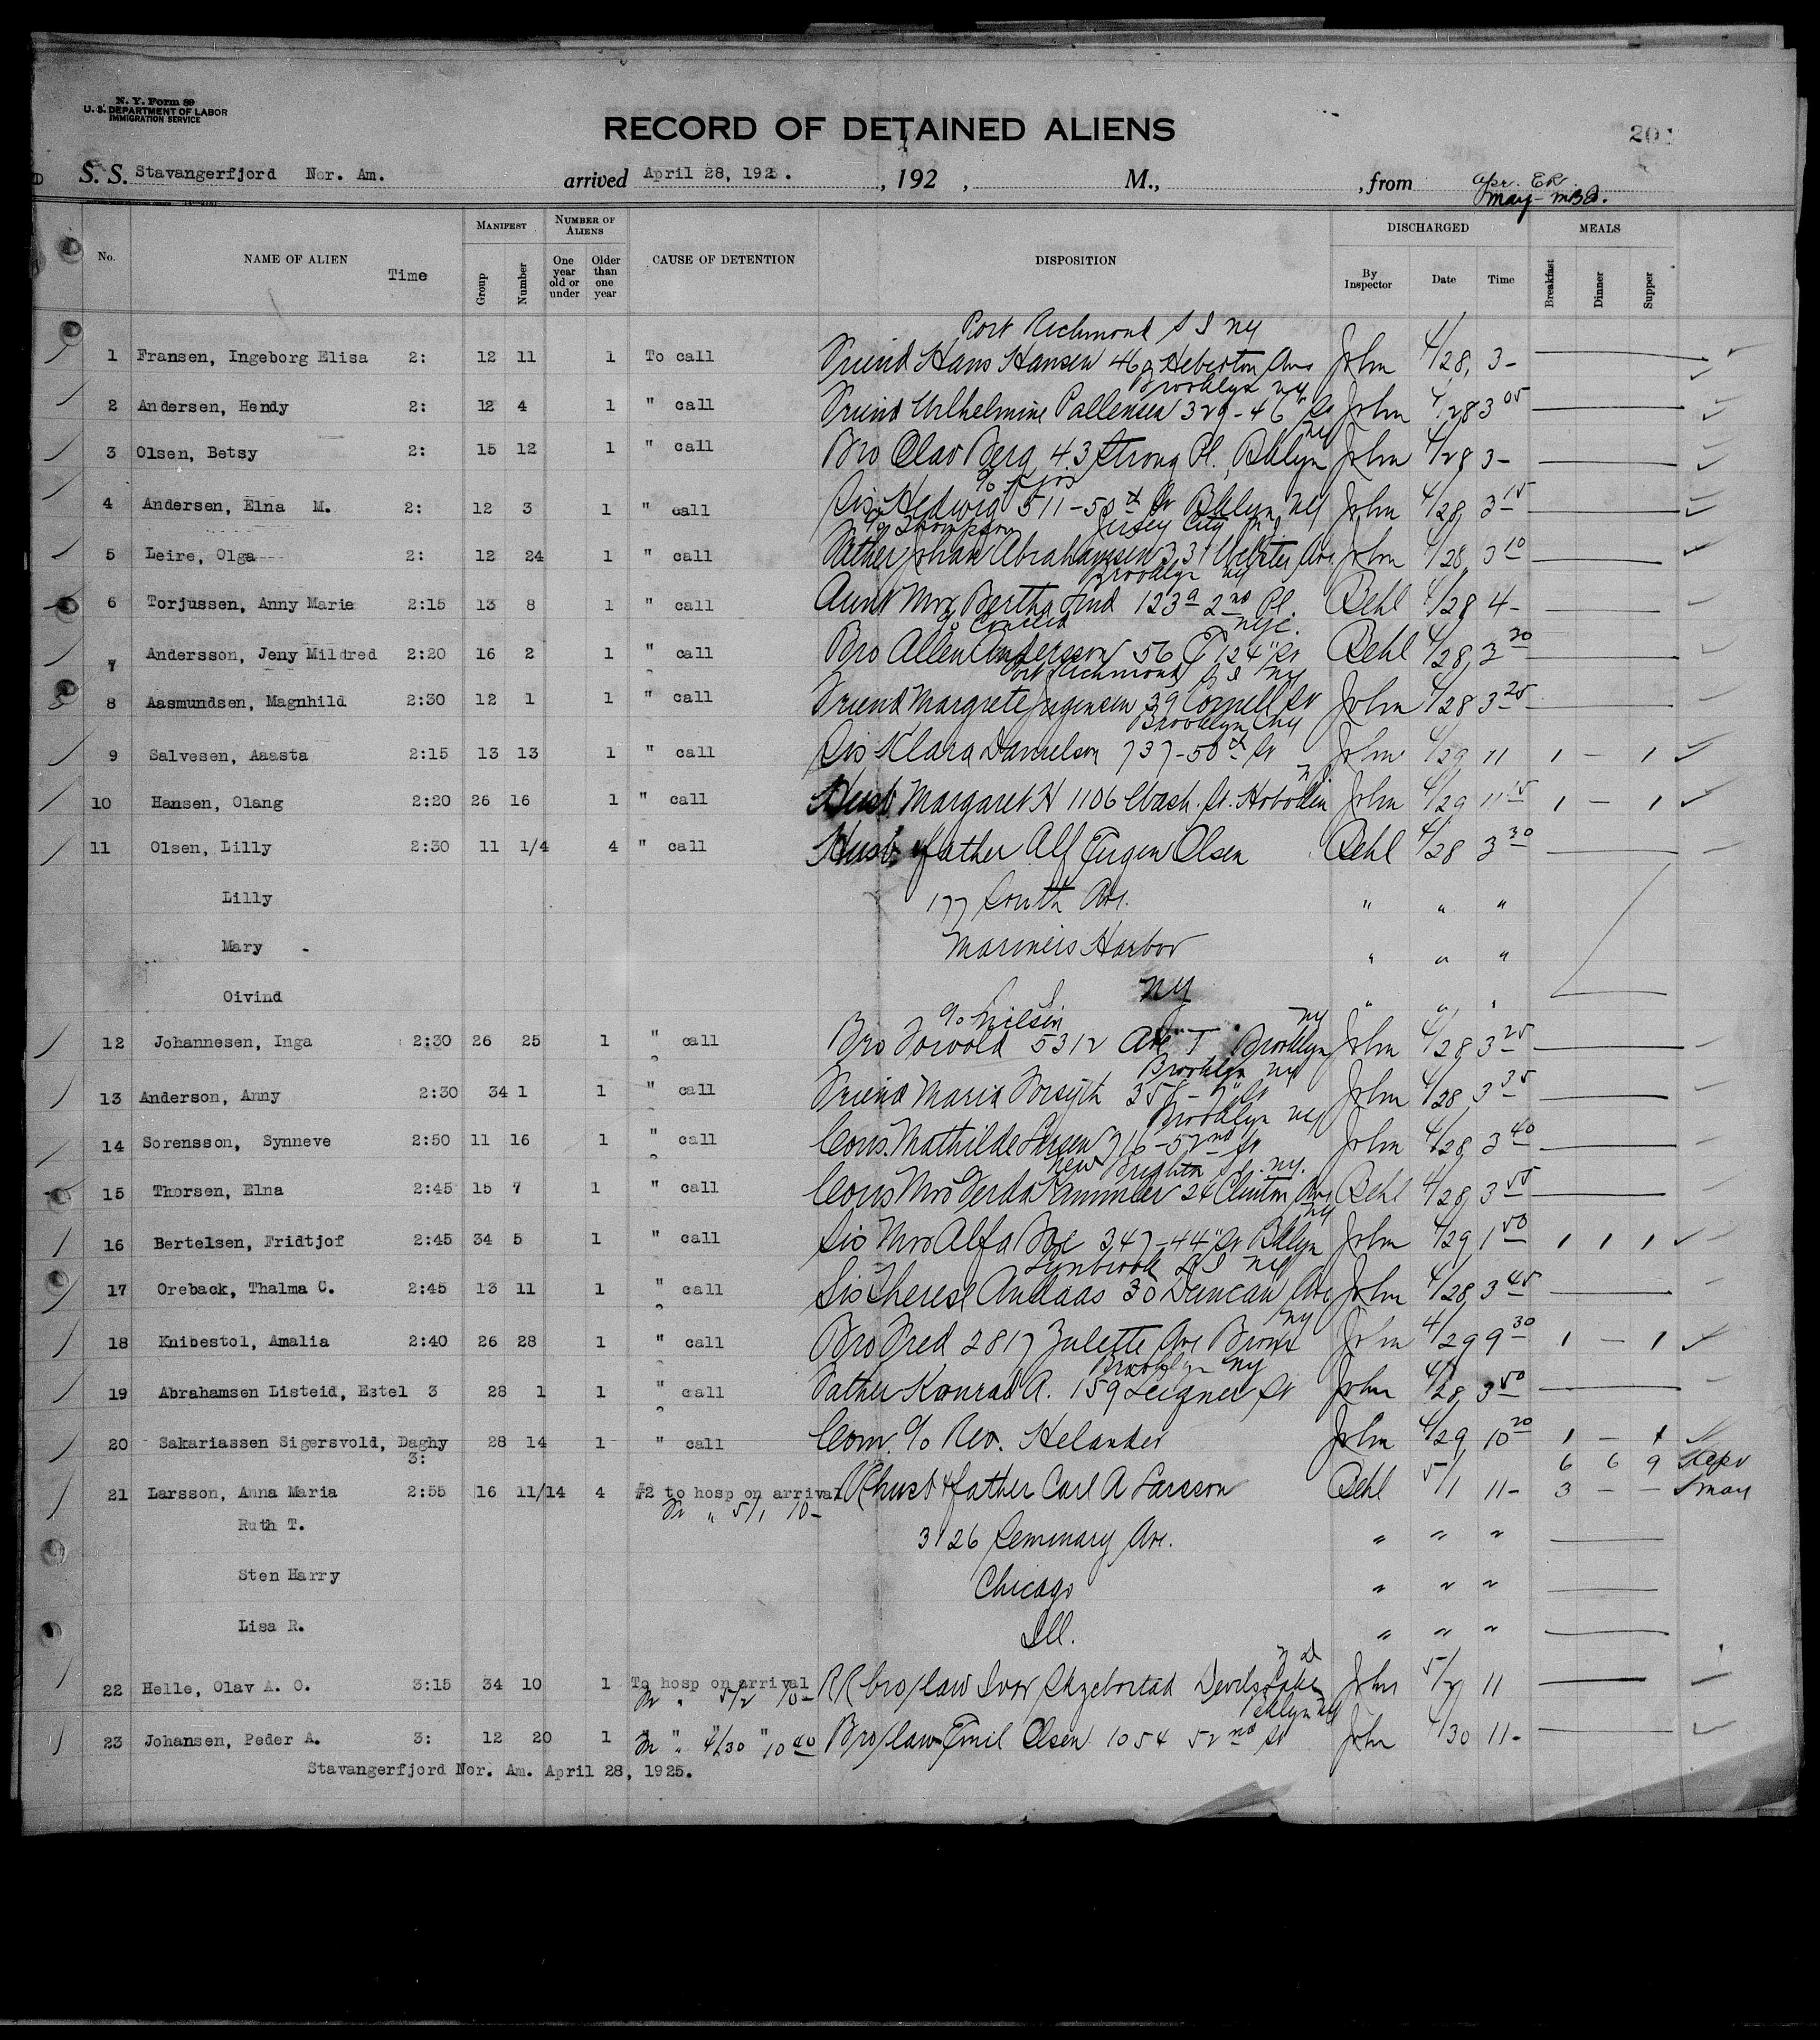 N. Y. Form 89
U. S. DEPARTMENT OF LABOR
IMMIGRATION SERVICE
RECORD OF DETAINED ALIENS
201
S. S. Stavangerfjord Nor. Am. arrived April 28, 1925. , 192 , M., , from Apr. ER
May - MBD.
No. NAME OF ALIEN Time MANIFEST Group Number NUMBER OF ALIENS One year old or under Older than one year CAUSE OF DETENTION DISPOSITION DISCHARGED By Inspector Date Time MEALS Breakfast Dinner Supper
Port Richmond S I NY
1 Fransen, Ingeborg Elisa 2: 12 11 1 To call Friend Hans Hansen 469 Heberton Ave John 4/28 3-
Brooklyn NY
2 Andersen, Hendy 2: 12 4 1 " call Friend Wilhelmine Pallensen 329-46" St John 4/28 3 05
NY
3 Olsen, Betsy 2: 15 12 1 " call Bro Olav Berg 43 Strong Pl. Bklyn John 4/28 3-
4 Andersen, Elna M. 2: 12 3 1 " call Sis Hedwig 511-50th St Bklyn NY John 4/28 3 15
c/o Thompson Jersey City NJ
5 Leire, Olga 2: 12 24 1 " call Father Johan Abrahamsen 331 Webster Ave John 4/28 3 10
Brooklyn NY
6 Torjussen, Anny Marie 2:15 13 8 1 " call Aunt Mrs Bertha Lind 123a 2nd Pl. Behl 4/28 4-
NYC.
7 Andersson, Jeny Mildred 2:20 16 2 1 " call Bro Allen Andersson 56 E 124" St Behl 4/28 3 20
Port Richmond S I NY
8 Aasmundsen, Magnhild 2:30 12 1 1 " call Friend Margrete Jugensen 39 Cornell St John 4/28 3 25
Brooklyn NY
9 Salvesen, Aaasta 2:15 13 13 1 " call Sis Klara Danielson 737-50th St John 4/29 11 1 - 1
NJ
10 Hansen, Olang 2:20 26 16 1 " call Margaret H 1106 Wash. St. Hoboken John 4/29 11 15 1 - 1
11 Olsen, Lilly 2:30 11 1/4 4 " call Husb father Alf Eugen Olsen Behl 4/28 3 30
Lilly 177 South Ave. " " "
Mary Mariners Harbor " " "
Oivind NY " " "
c/o Nielsen NY
12 Johannesen, Inga 2:30 26 25 1 " call Bro Torvold 5312 Ave T Brooklyn John 4/28 3 25
Brooklyn NY
13 Anderson, Anny 2:30 34 1 1 " call Friend Maria Forsyth 358-9" St John 4/28 3 35
Brooklyn NY
14 Sorensson, Synneve 2:50 11 16 1 " call Cous. Mathilde Larsen 716-52nd St John 4/28 3 40
New Brighton S.I. NY.
15 Thorsen, Elna 2:45 15 7 1 " call Cous Mrs Gerda Kammeier 24 Clinton Ave Behl 4/28 3 55
NY
16 Bertelsen, Fridtjof 2:45 34 5 1 " call Sis Mrs Alfa Boe 247-44" St Bklyn John 4/29 1 50 1 1 1
Lynbrook L I NY
17 Oreback, Thalma C. 2:45 13 11 1 " call Sis Therese Andaas 30 Duncan Ave John 4/28 3 45
NY
18 Knibestol, Amalia 2:40 26 28 1 " call Bro Fred 2817 Zulette Ave Bronx John 4/29 9 30 1 - 1
Brooklyn NY
19 Abrahamsen Listeid, Estel 3 28 1 1 " call Father Konrad A. 159 Seigner St John 4/28 3 50
20 Sakariassen Sigersvold, Daghy 28 14 1 " call Com. c/o Rev. Helander John 4/29 10 20 1 - 1
3: 6 6 9 Apr
21 Larsson, Anna Maria 2:55 16 11/14 4 #2 to hosp on arrival RR husb & father Carl A Larsson Behl 5/1 11- 3 - - May
Fr " 5/1 10-
Ruth T. 3126 Seminary Ave. " " "
Sten Harry Chicago " " "
Lisa R. Ill. " " "
N D
22 Helle, Olav A. O. 3:15 34 10 1 To hosp on arrival RR bro/law Ivar Devils Lake John 5/2 11
Fr " 5/2 10-
Bklyn NY
23 Johansen, Peder A. 3: 12 20 1 " " Fr " 4/30 " 10 40 Bro/law Emil Olsen 1054 52nd St John 4/30 11-
Stavangerfjord Nor. Am. April 28, 1925.